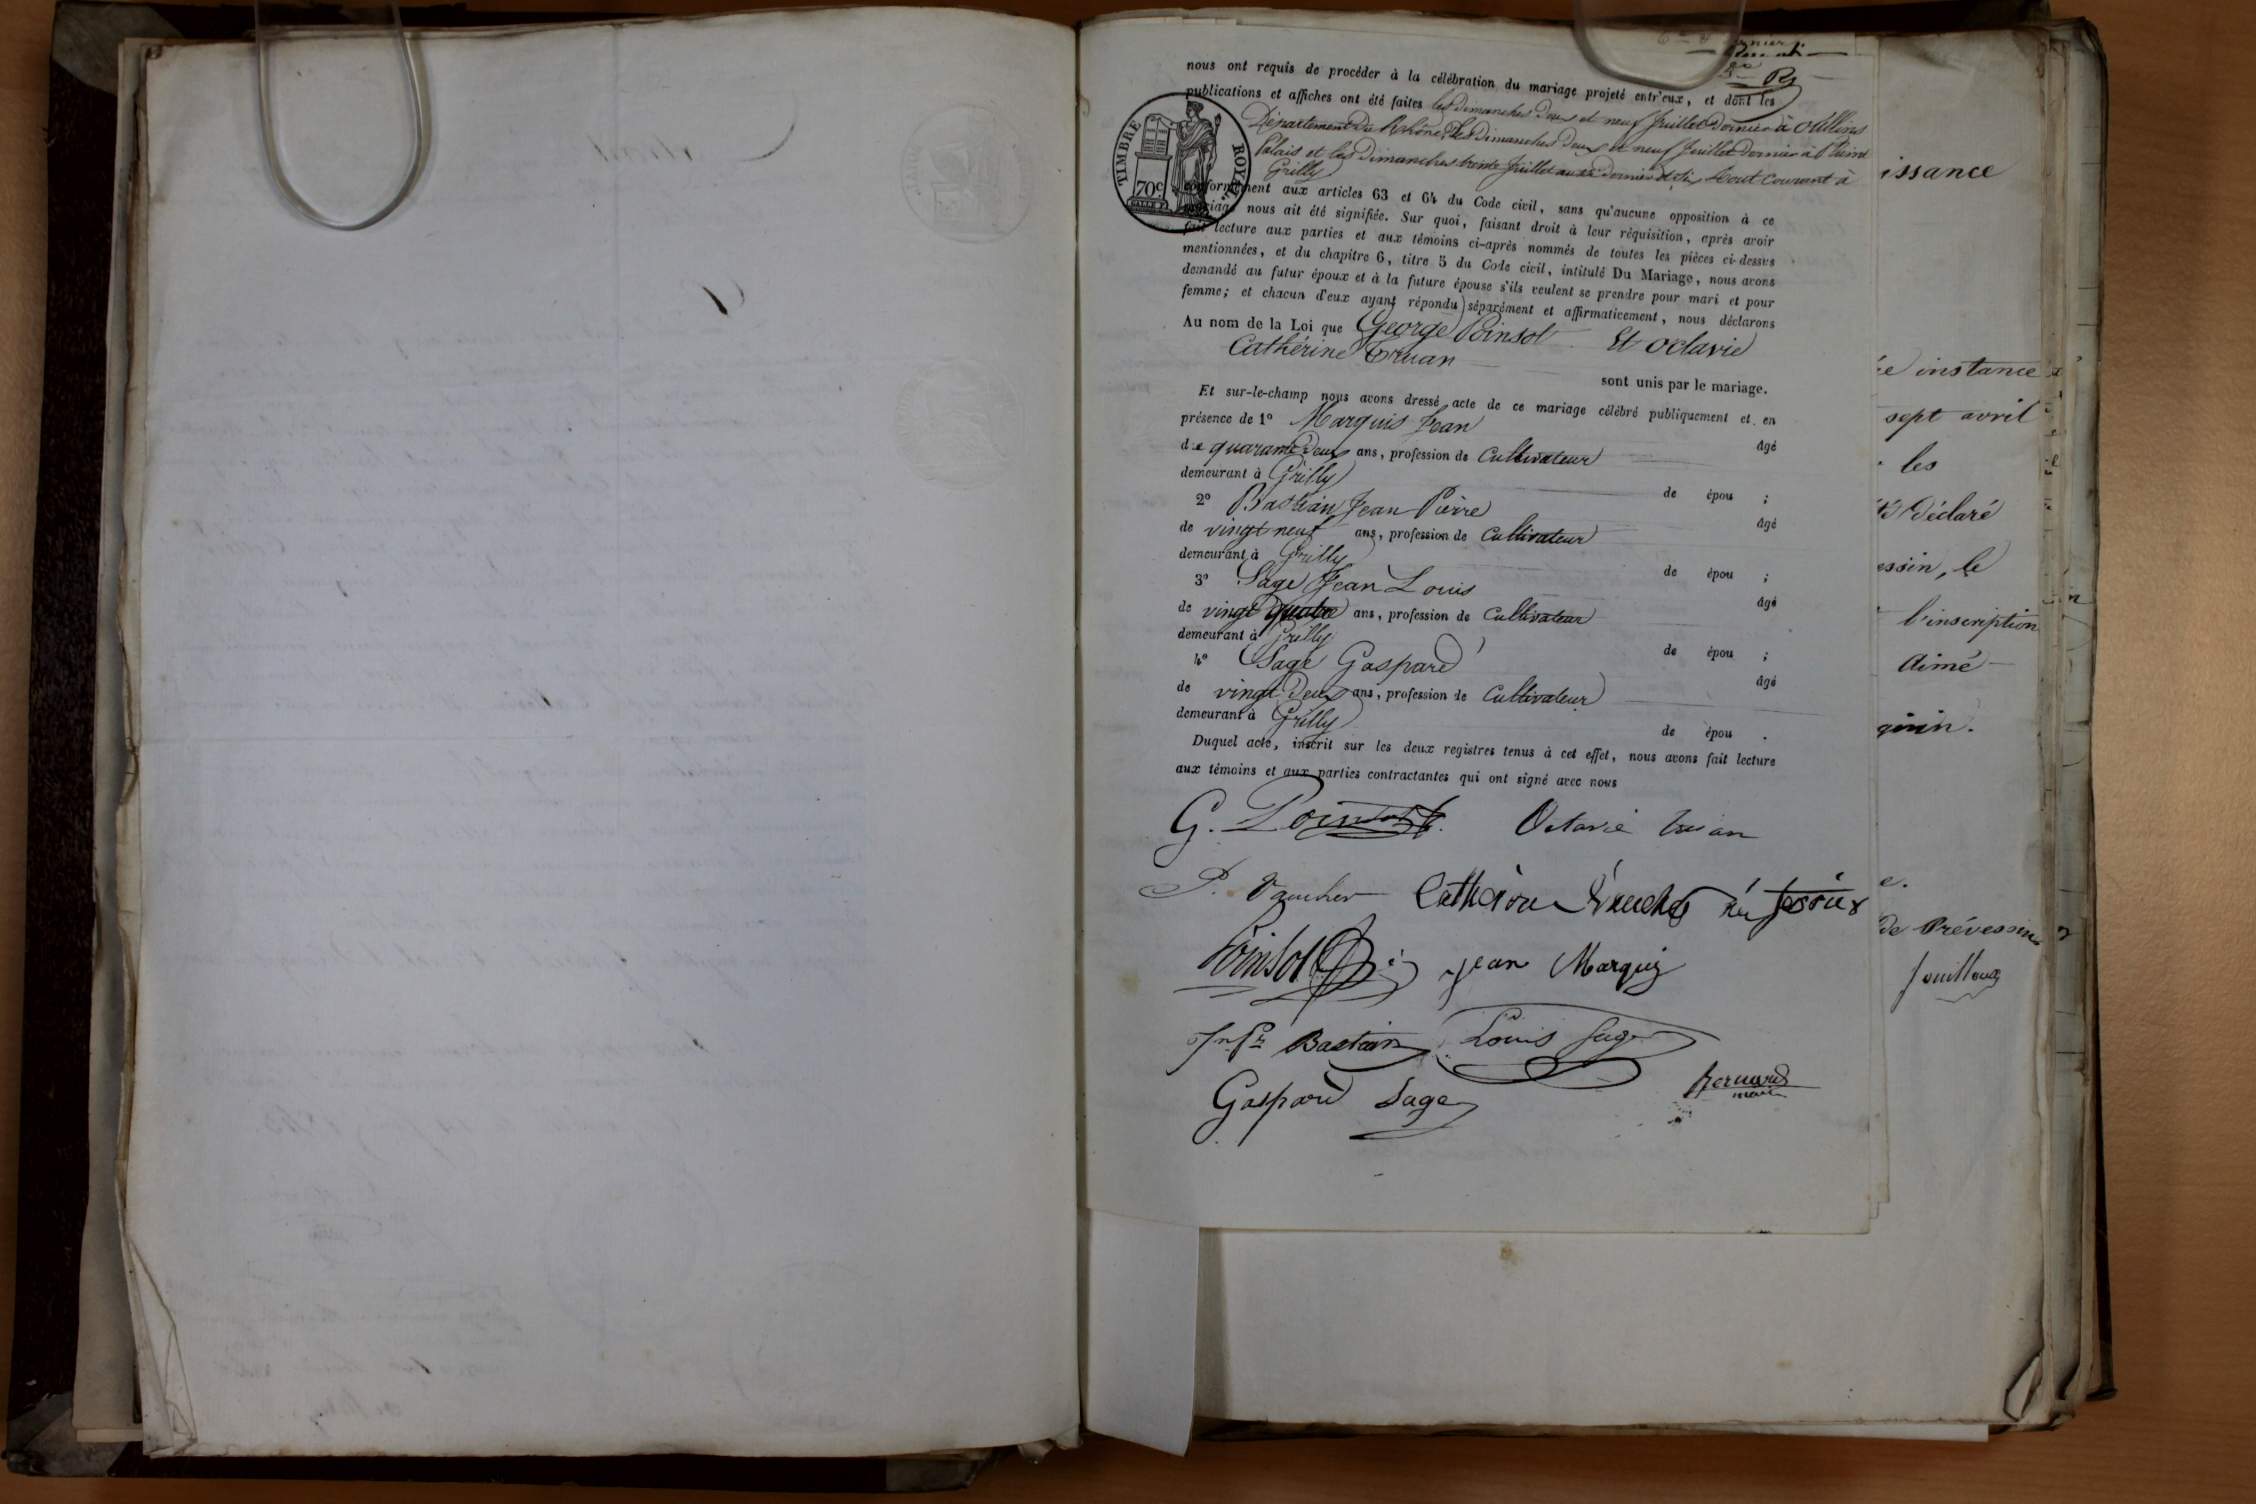 nous ont requis de procéder à la célébration du mariage projeté entr'eux, et dont les
publications et affiches ont été faites les dimanches deux et neuf Juillet dernier à Oullins
Département du Rhône, les Dimanches deux et neuf Juillet dernier à
Palais et les Dimanches trente Juillet dernier et six Aout Courant à
Grilly
conformément aux articles 63 et 64 du Code civil, sans qu'aucune opposition à ce
mariage nous ait été signifiée. Sur quoi, faisant droit à leur réquisition, après avoir
fait lecture aux parties et aux témoins ci-après nommés de toutes les pièces ci-dessus
mentionnées, et du chapitre 6, titre 5 du Code civil, intitulé Du Mariage, nous avons
demandé au futur époux et à la future épouse s'ils veulent se prendre pour mari et pour
femme; et chacun d'eux ayant répondu séparément et affirmativement, nous déclarons
Au nom de la Loi que George Poinsot Et Octavie
Cathérine Truan
sont unis par le mariage.
Et sur-le-champ nous avons dressé acte de ce mariage célébré publiquement et en
présence de 1º Marquis Jean
âgé
de quarante deux ans, profession de Cultivateur
demeurant à Grilly
de épou ;
2º Bastian Jean Pierre
âgé
de vingt neuf ans, profession de Cultivateur
demeurant à Grilly
de épou ;
3º Sage Jean Louis
âgé
de vingt quatre ans, profession de Cultivateur
demeurant à Grilly
de épou ;
4º Sage Gaspard
âgé
de vingt deux ans, profession de Cultivateur
demeurant à Grilly
de épou .
Duquel acte, inscrit sur les deux registres tenus à cet effet, nous avons fait lecture
aux témoins et aux parties contractantes qui ont signé avec nous
G. Poinsot Octavie Truan
P. Vaucher Catherine Vaucher née
Poinsot Jean Marquis
Jn Pre Bastian Louis Sage
Gaspard Sage Bernard
maire
TIMBRE ROYAL
70 c
issance
instance
sept avril
les
déclaré
essin, le
l'inscription
Aimé
de Prévessin
fouilloux